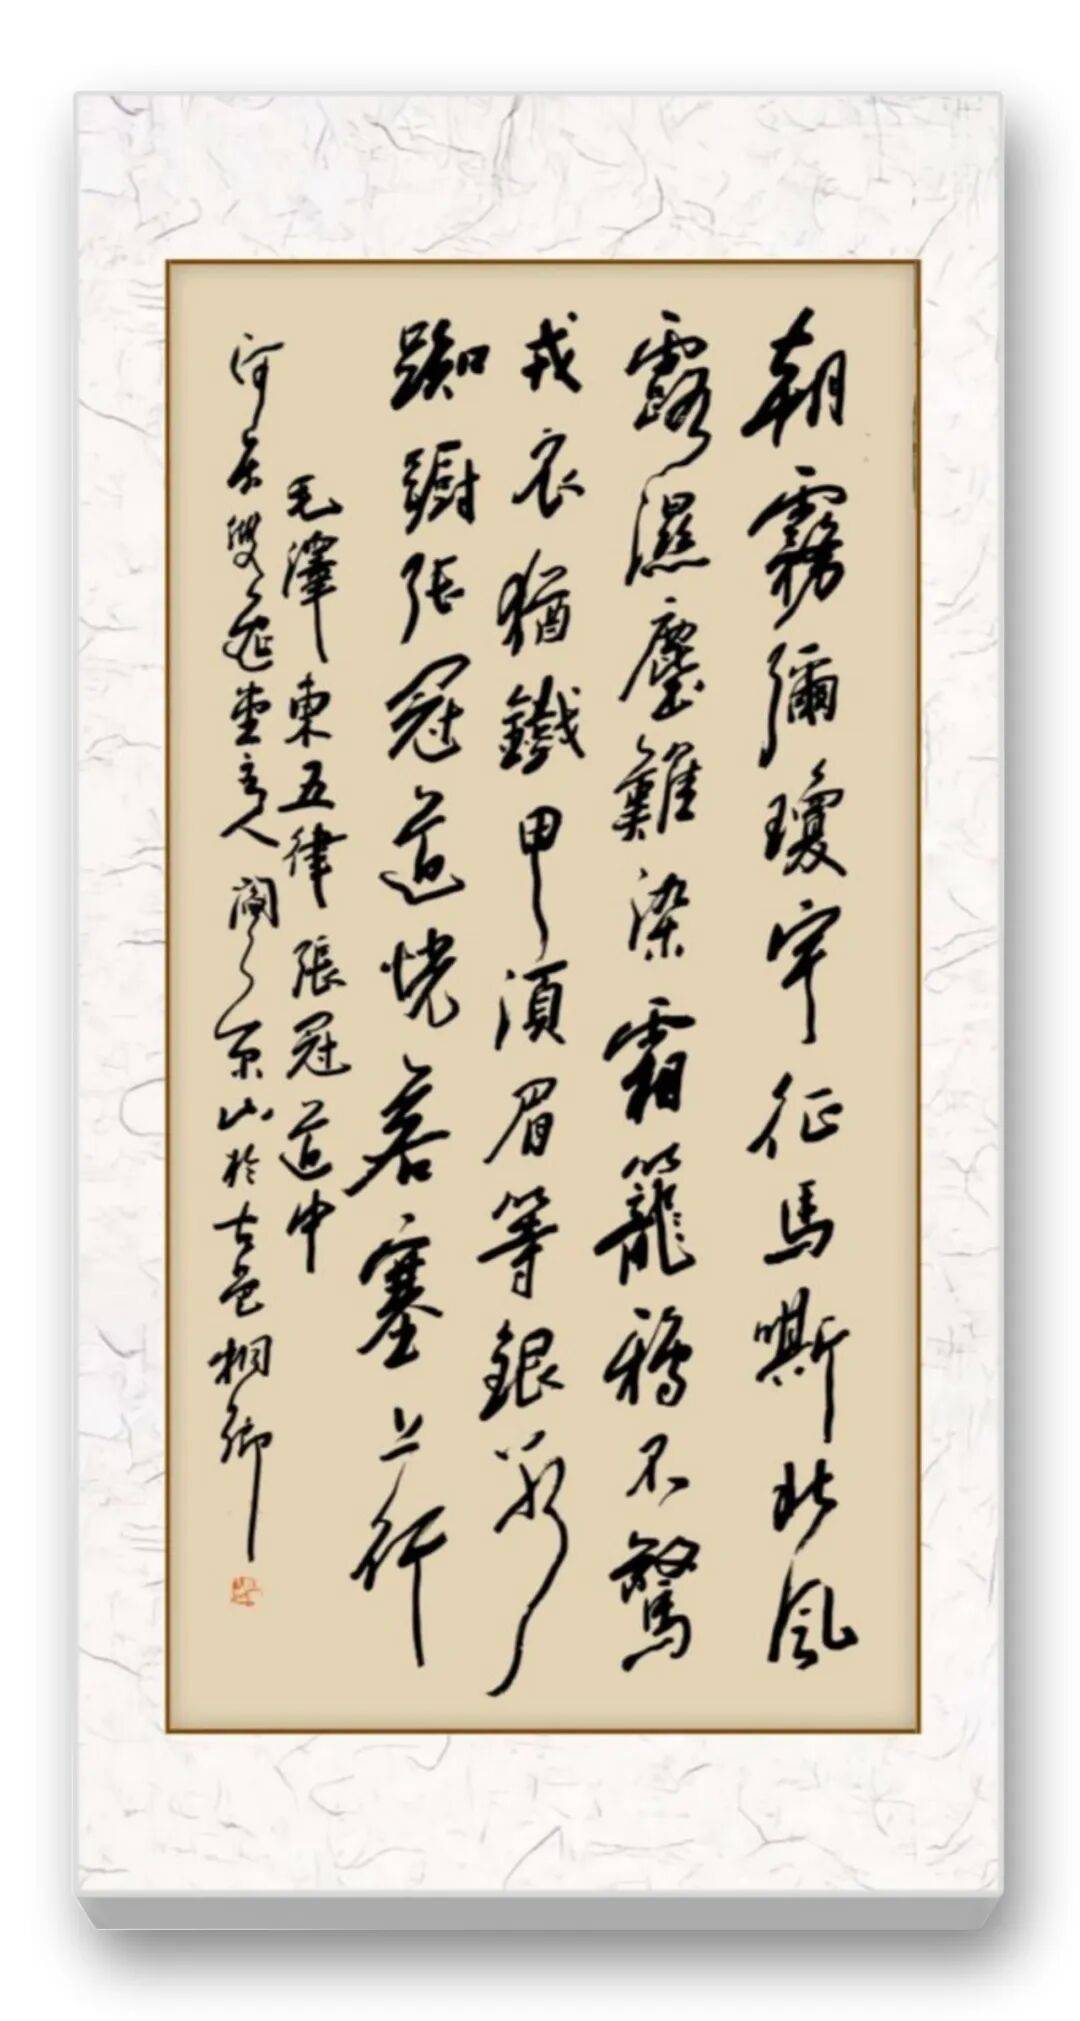 朝霧彌瓊宇征馬嘶北風
露濕塵難染霜籠鴉不驚
戎衣猶鐵甲須眉等銀冰
踟躕張冠道恍若塞上行
毛澤東五律張冠道中
河東叟堂主人閻京山於古邑桐鄉